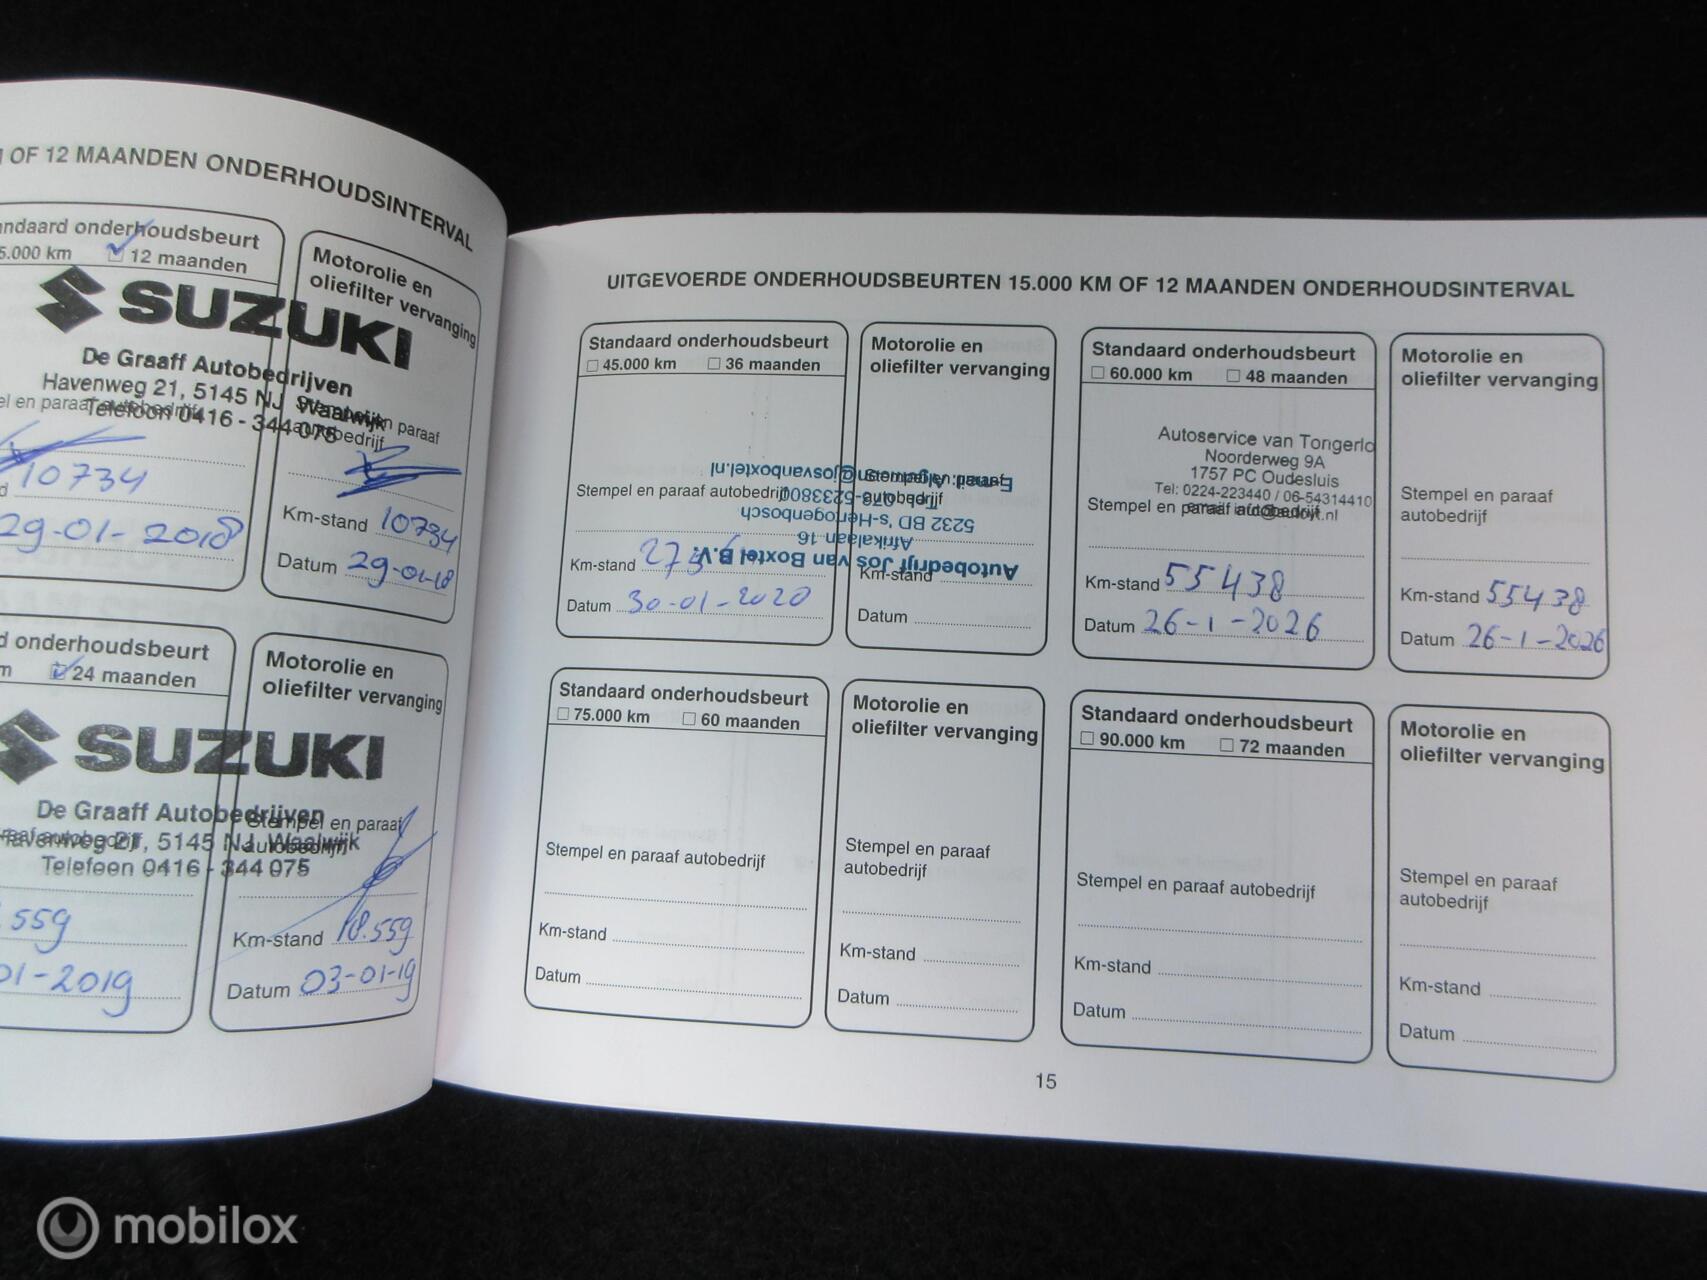 OF 12 MAANDEN ONDERHOUDSINTERVAL
ndaard onderhoudsbeurt
5.000 km 12 maanden
SUZUKI
De Graaff Autobedrijven
Havenweg 21, 5145 NJ Waalwijk
Telefoon 0416 - 344 075
el en paraaf autobedrijf
10734
29-01-2018
Motorolie en
oliefilter vervanging
Stempel en paraaf
autobedrijf
Km-stand 10734
Datum 29-01-18
d onderhoudsbeurt
m 24 maanden
SUZUKI
De Graaff Autobedrijven
Havenweg 21, 5145 NJ Waalwijk
Telefoon 0416 - 344 075
.559
01-2019
Motorolie en
oliefilter vervanging
Stempel en paraaf
autobedrijf
Km-stand 18.559
Datum 03-01-19
UITGEVOERDE ONDERHOUDSBEURTEN 15.000 KM OF 12 MAANDEN ONDERHOUDSINTERVAL
Standaard onderhoudsbeurt
45.000 km 36 maanden
Stempel en paraaf autobedrijf
Km-stand
Datum 30-01-2020
Autobedrijf Jos van Boxtel B.V.
Afrikalaan 16
5232 BD 's-Hertogenbosch
Tel. 073-5233800
Email: Algemeen@josvanboxtel.nl
Motorolie en
oliefilter vervanging
Stempel en paraaf
autobedrijf
Km-stand
Datum
Standaard onderhoudsbeurt
60.000 km 48 maanden
Autoservice van Tongerlo
Noorderweg 9A
1757 PC Oudesluis
Tel: 0224-223440 / 06-54314410
Stempel en paraaf autobedrijf
Km-stand 55438
Datum 26-1-2026
Motorolie en
oliefilter vervanging
Stempel en paraaf
autobedrijf
Km-stand 55438
Datum 26-1-2026
Standaard onderhoudsbeurt
75.000 km 60 maanden
Stempel en paraaf autobedrijf
Km-stand
Datum
Motorolie en
oliefilter vervanging
Stempel en paraaf
autobedrijf
Km-stand
Datum
Standaard onderhoudsbeurt
90.000 km 72 maanden
Stempel en paraaf autobedrijf
Km-stand
Datum
Motorolie en
oliefilter vervanging
Stempel en paraaf
autobedrijf
Km-stand
Datum
15
mobilox